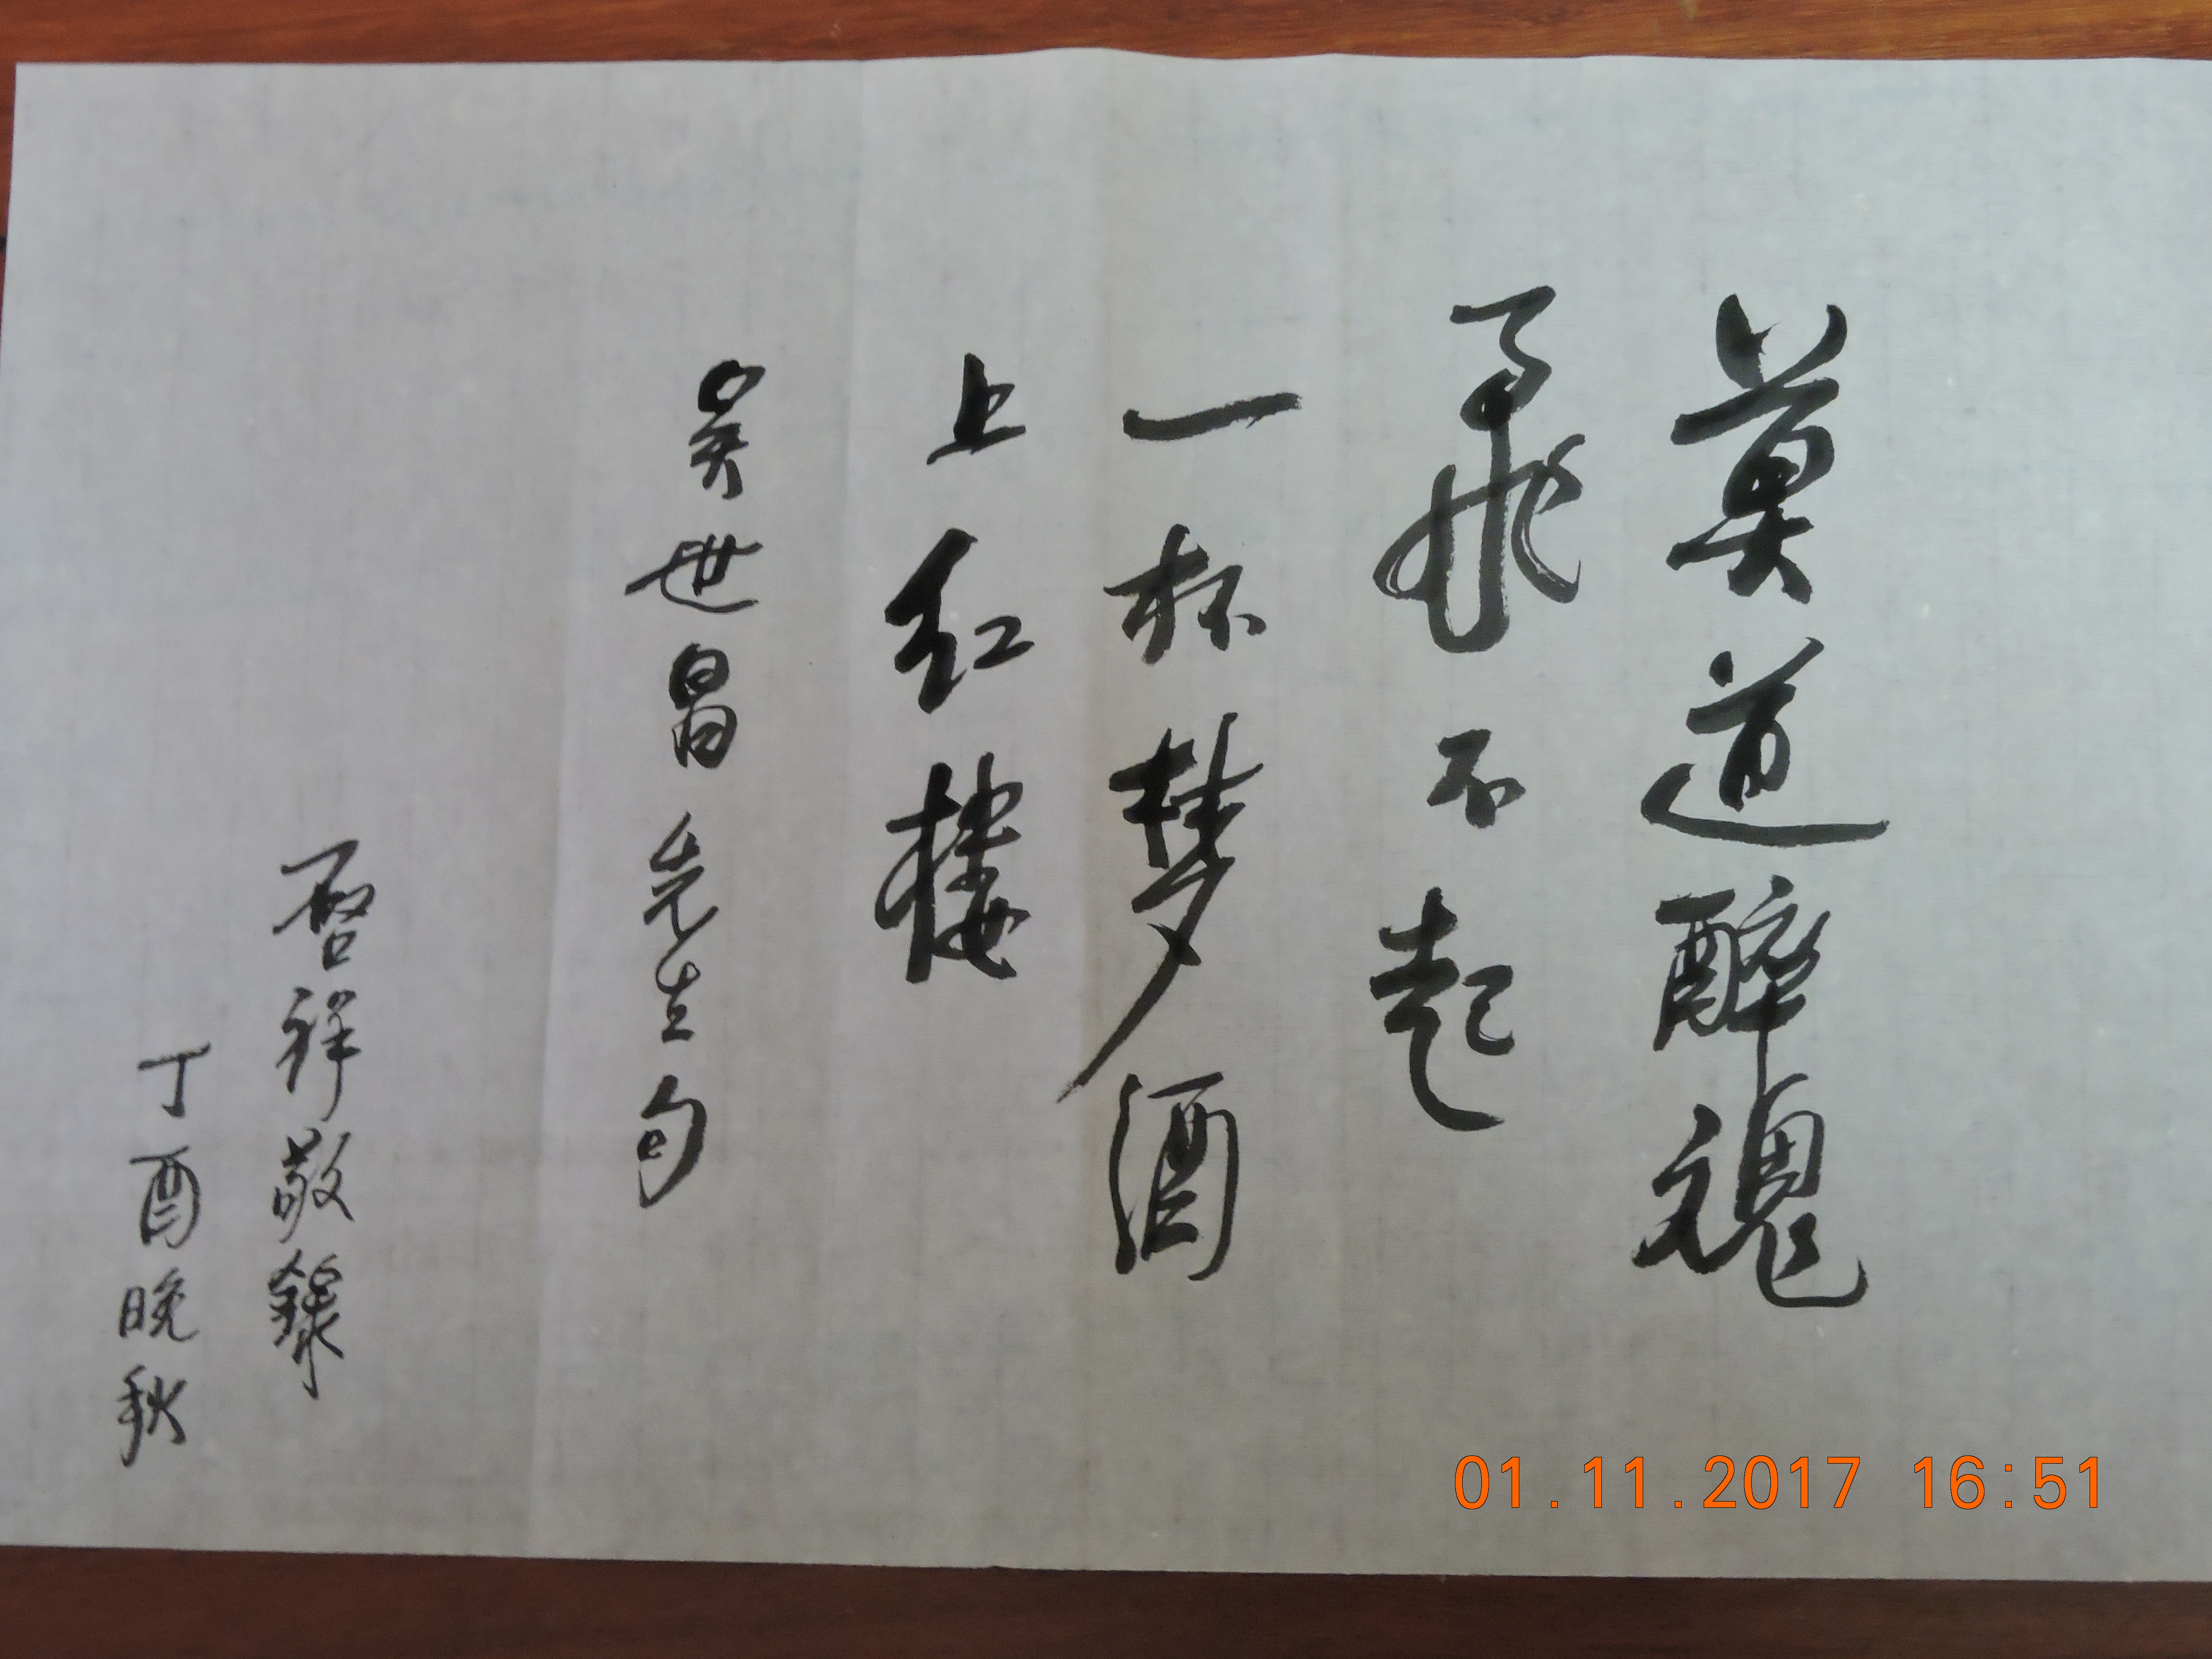 莫道醉魂
飛不起
一杯梦酒
上红楼
吴世昌先生句
启祥敬錄
丁酉晚秋
01.11.2017 16:51